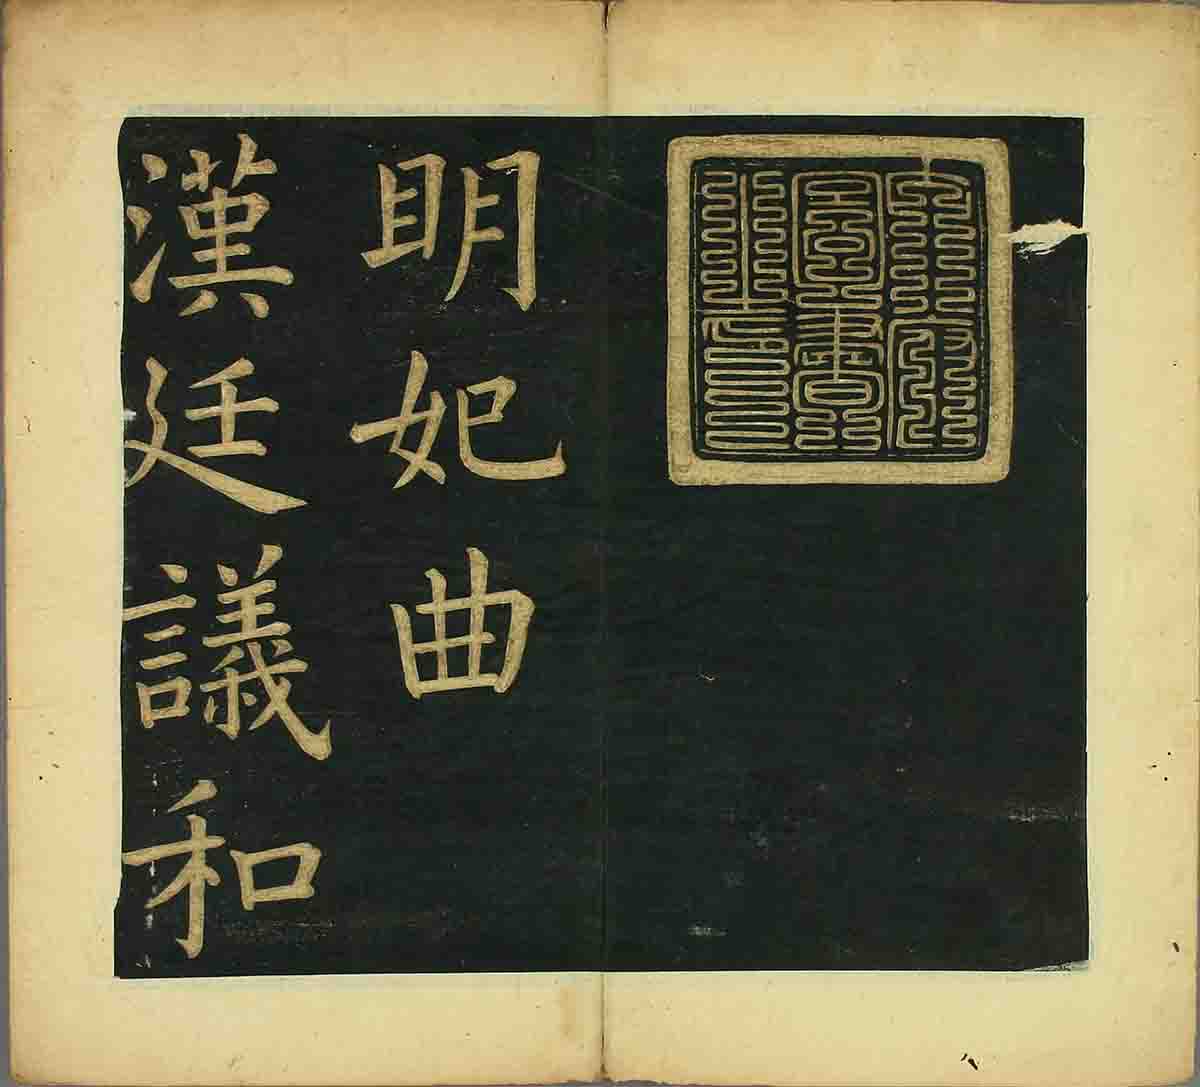 眀妃曲
漢廷議和